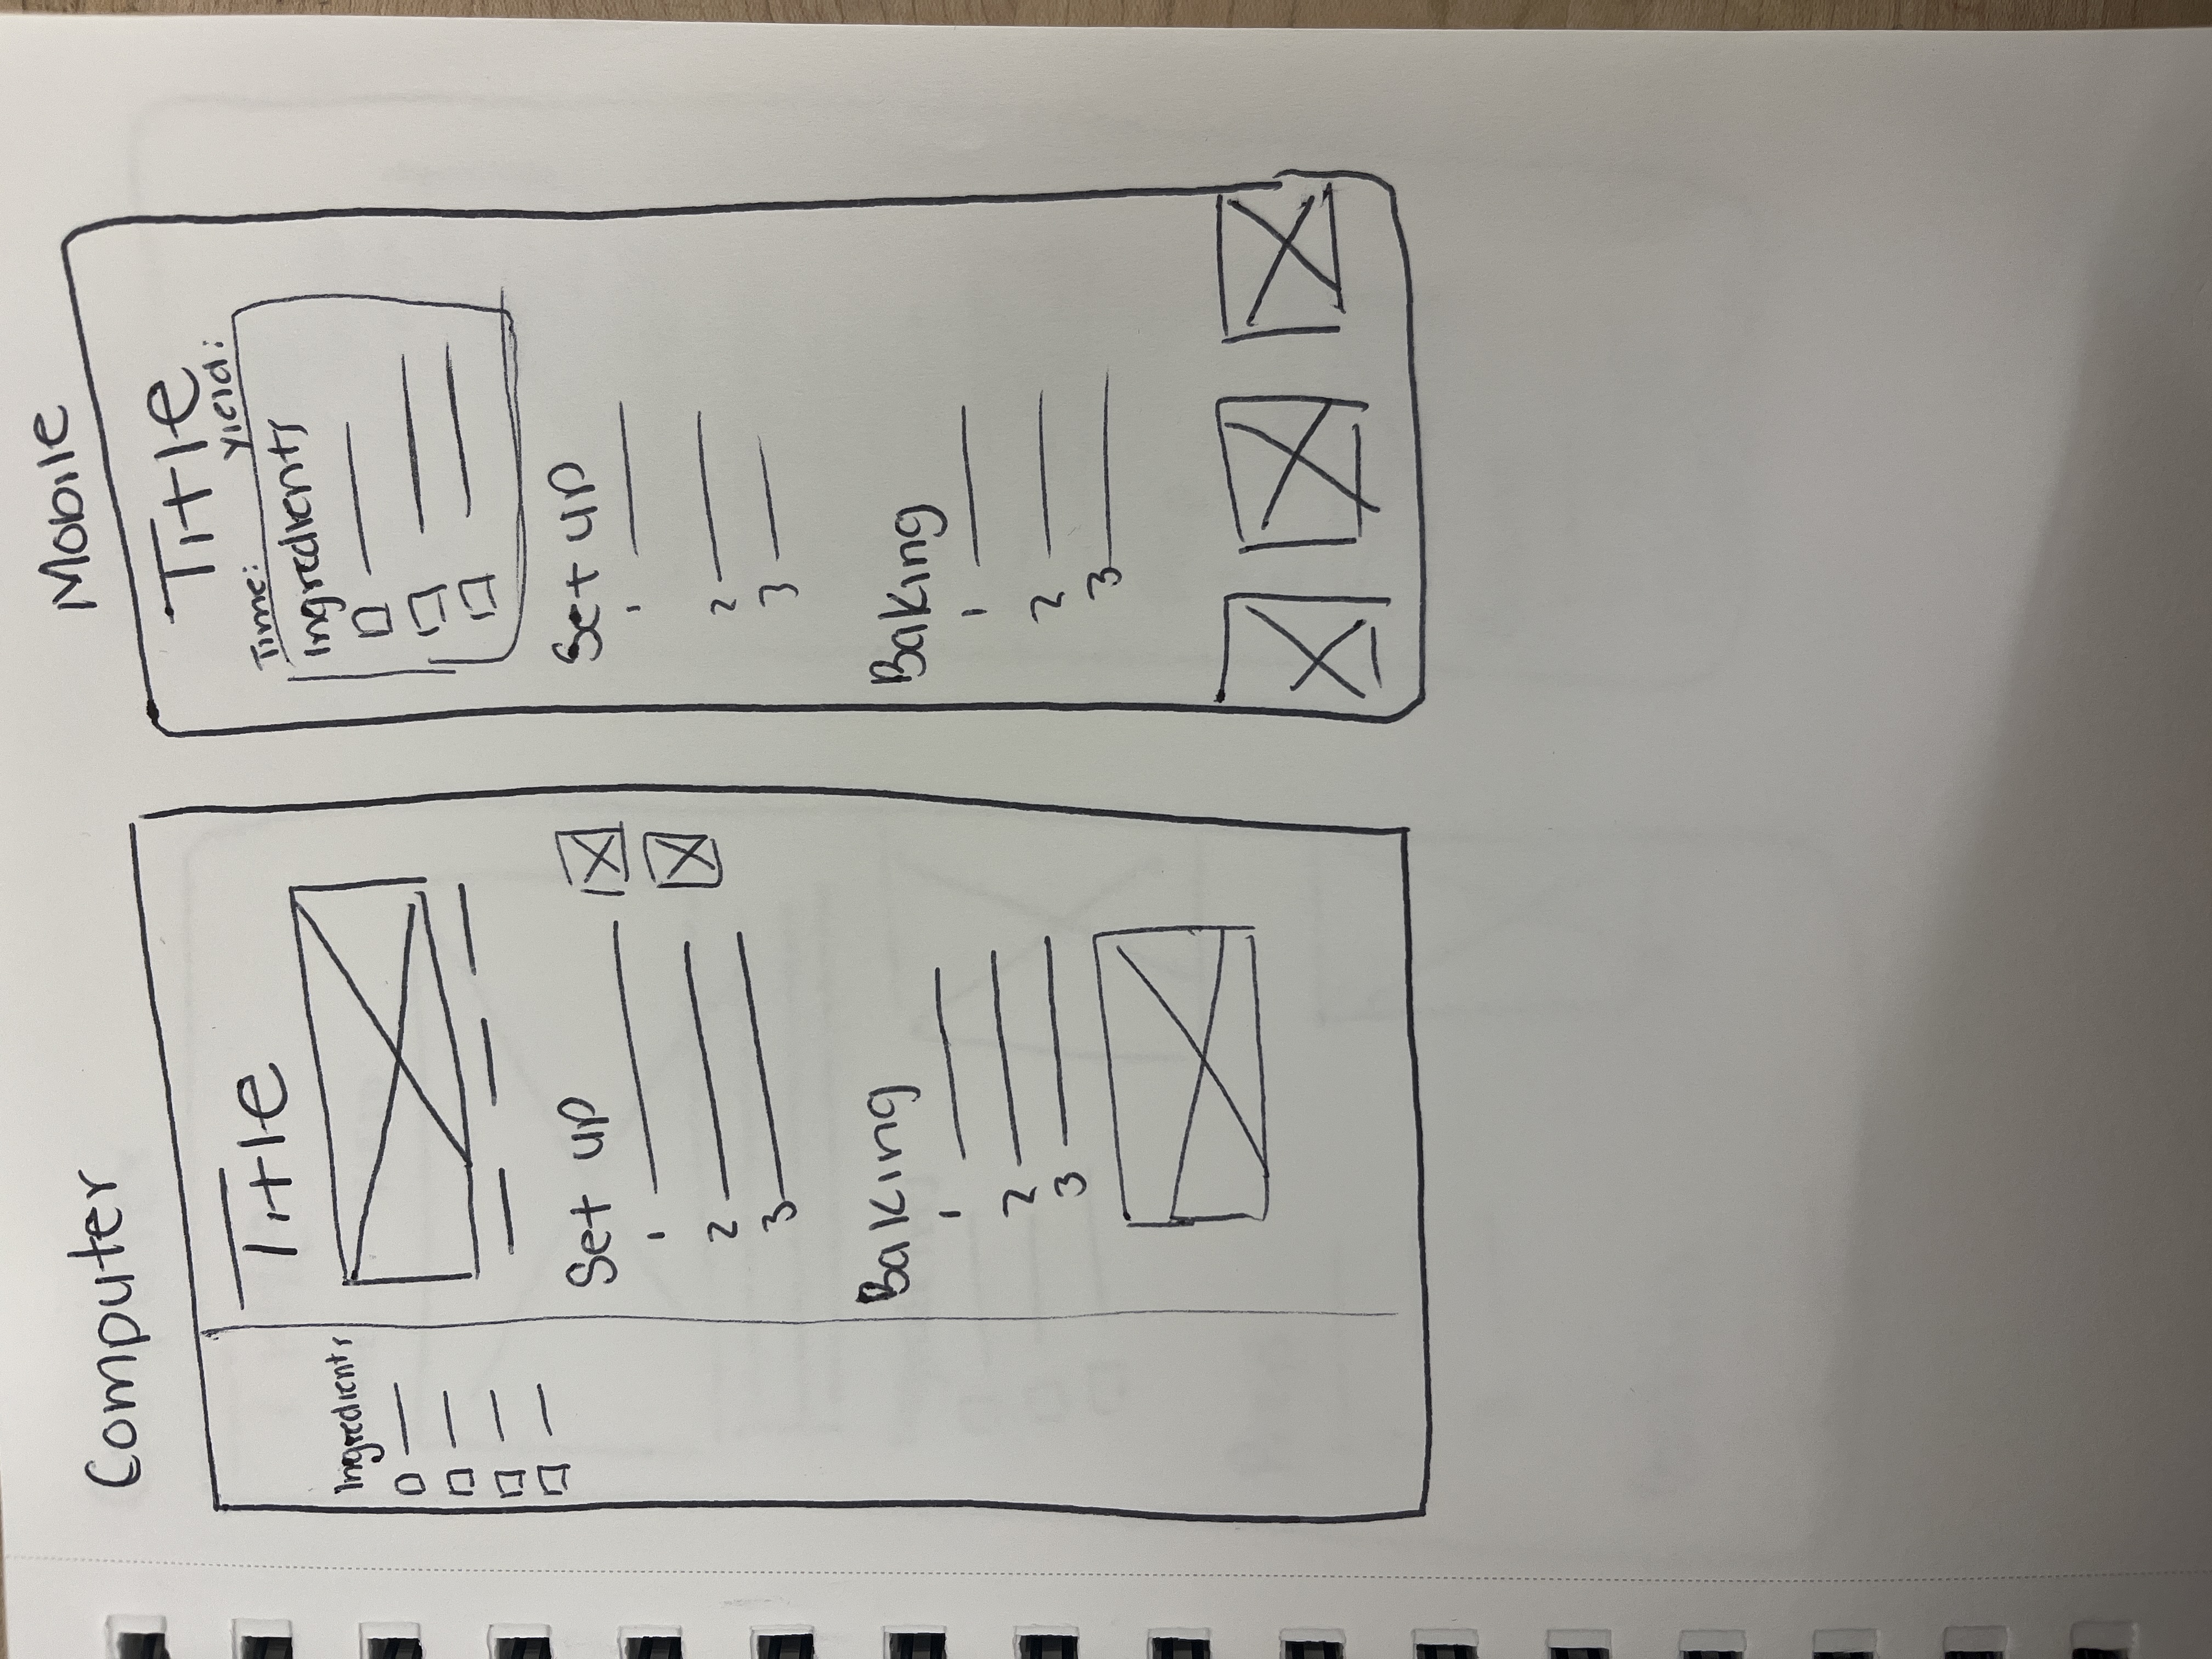 Computer
Title
Ingredients
Set up
1
2
3
Baking
1
2
3
Mobile
Title
Time: Yield:
Ingredients
Set up
1
2
3
Baking
1
2
3